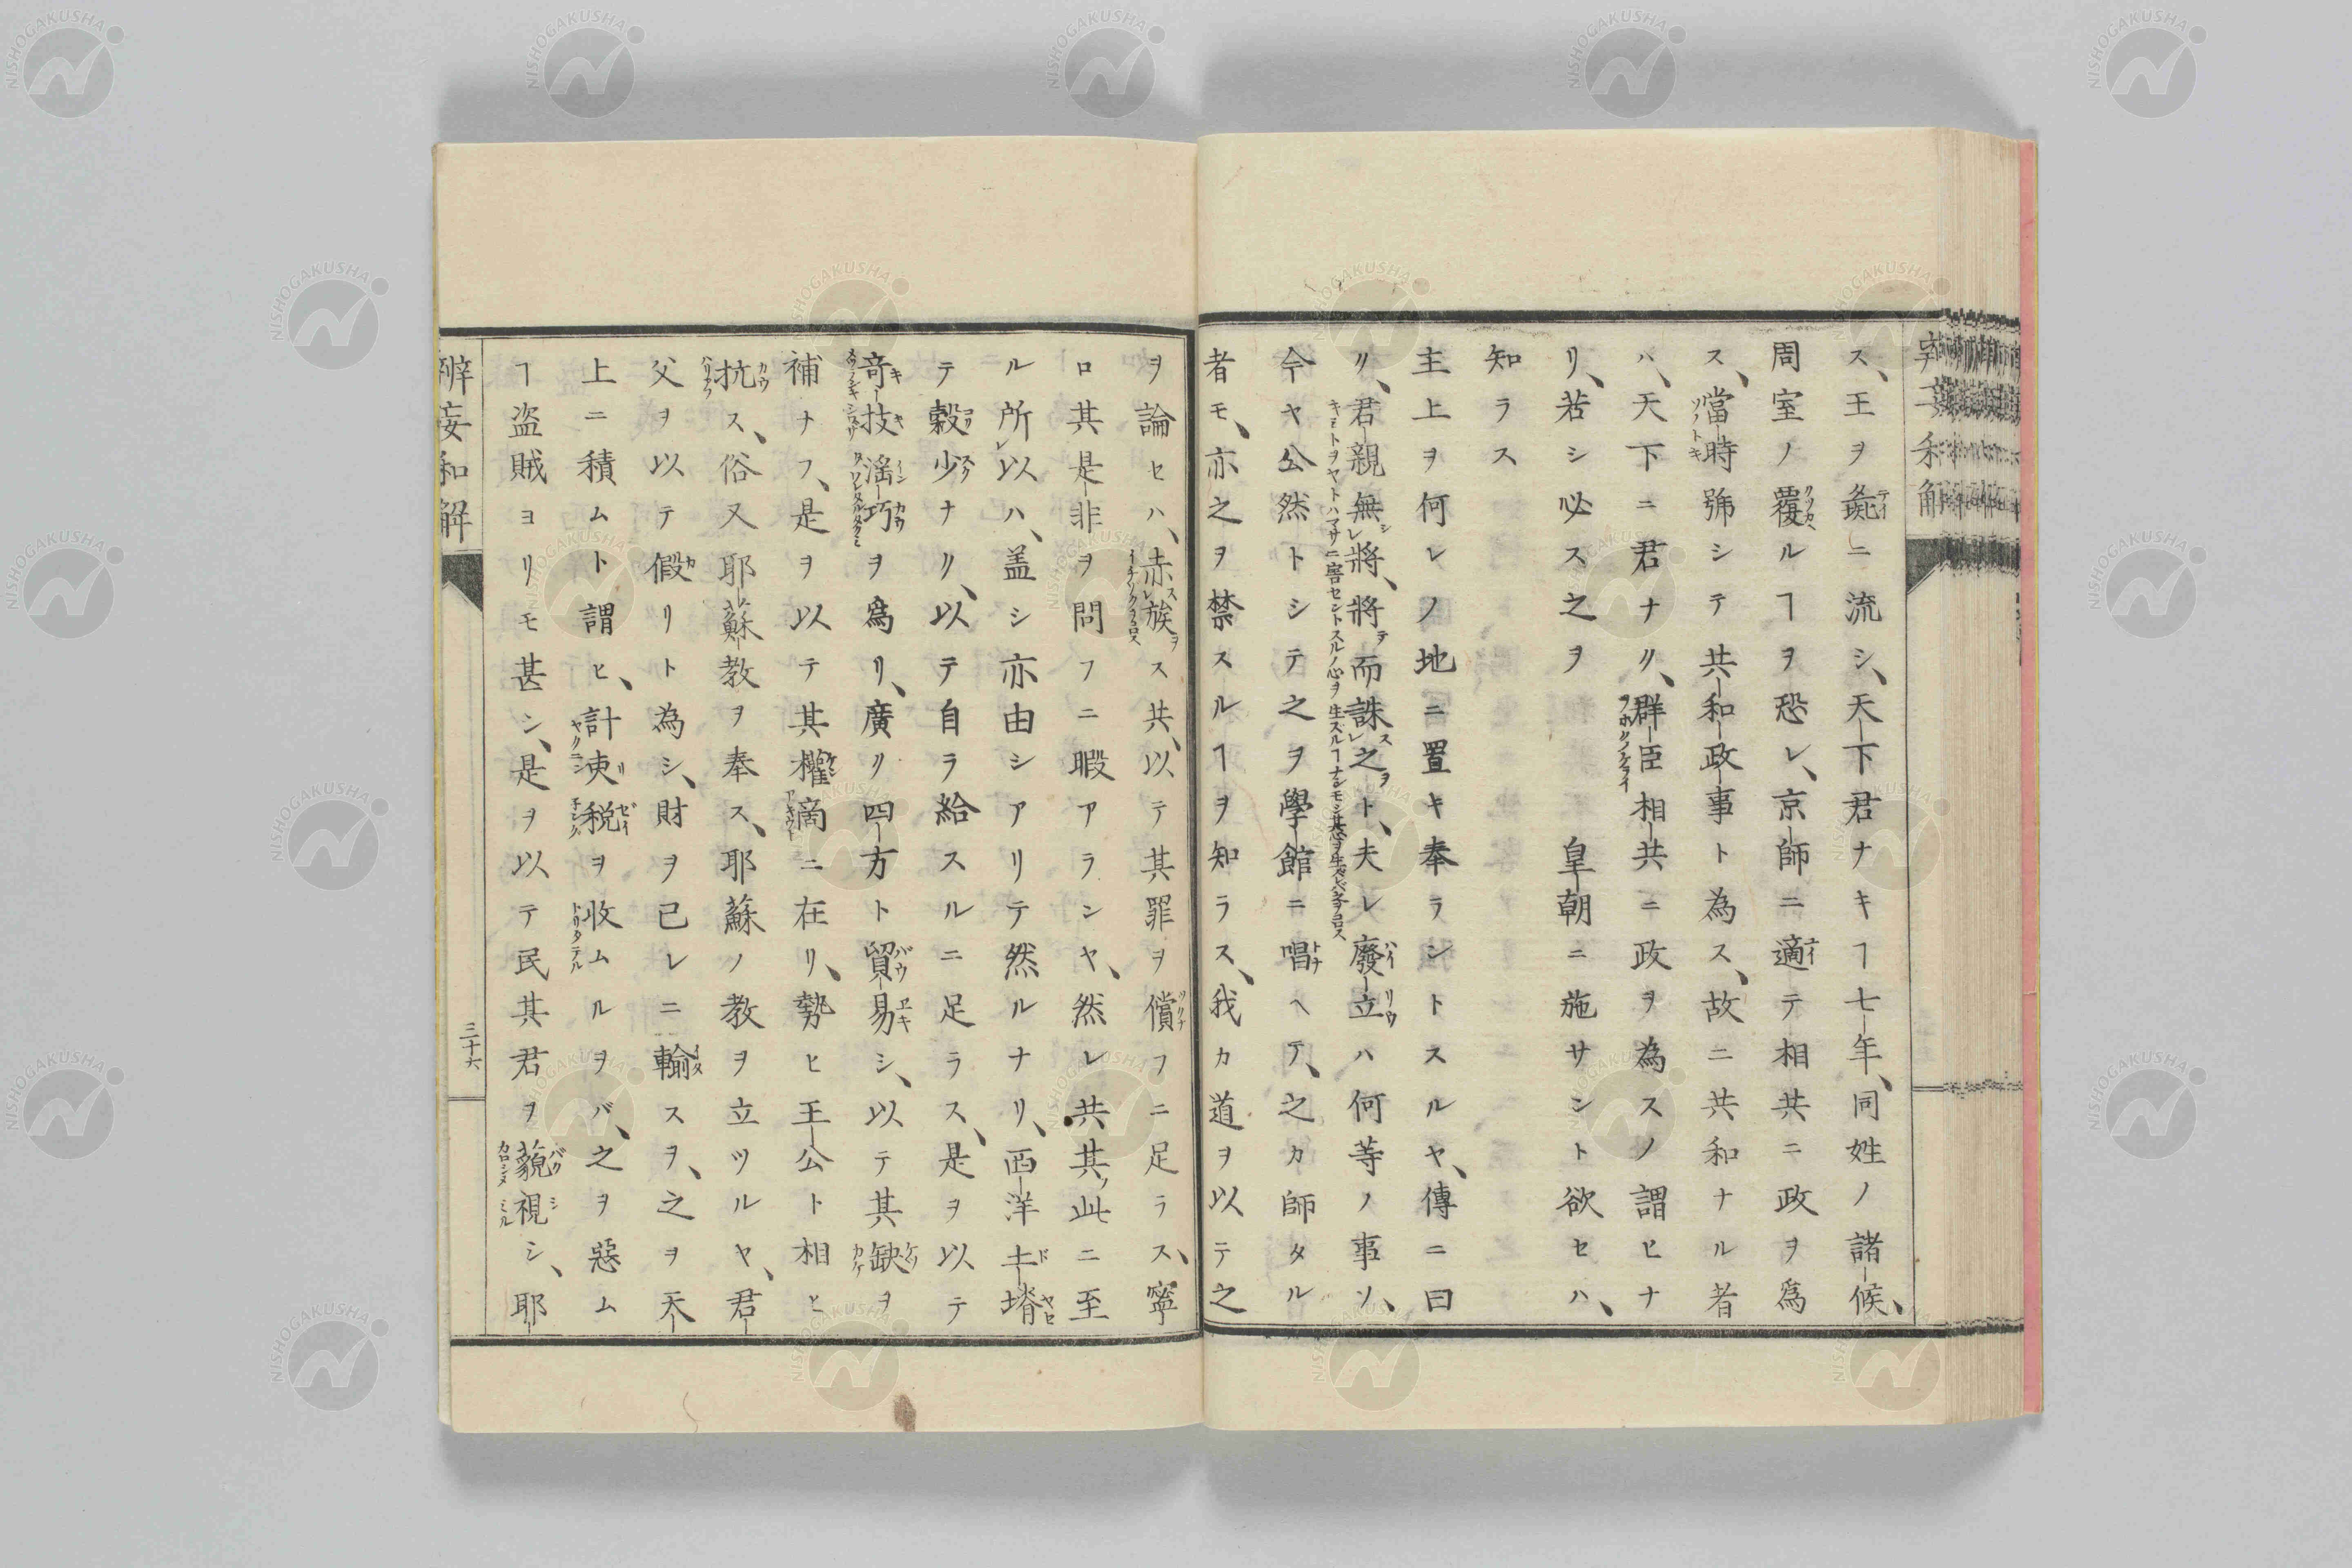 ス、王ヲ彘ニ流シ、天下君ナキヿ七年、同姓ノ諸候、
周室ノ覆ルヿヲ恐レ、京師ニ適テ相共ニ政ヲ爲
ス、當時號シテ共和政事ト為ス、故ニ共和ナル者
ハ、天下ニ君ナリ、群臣相共ニ政ヲ為スノ謂ヒナ
リ、若シ必ス之ヲ　皇朝ニ施サント欲セハ、
知ラス
主上ヲ何レノ地ニ置キ奉ラントスルヤ、傳ニ曰
リ、君親無レ將、將而誅レ之ト、夫レ廢立ハ何等ノ事ソ、
今ヤ公然トシテ之ヲ學館ニ唱ヘテ、之カ師タル
者モ、亦之ヲ禁スルヿヲ知ラス、我カ道ヲ以テ之
ヲ論セハ、赤レ族ス共、以テ其罪ヲ償フニ足ラス、寧
ロ其是非ヲ問フニ暇アランヤ、然レ共其ノ此ニ至
ル所レ以ハ、盖シ亦由シアリテ然ルナリ、西洋土塉
テ穀少ナリ、以テ自ラ給スルニ足ラス、是ヲ以テ
竒技滛巧ヲ爲リ、廣リ四方ト貿易シ、以テ其缺ヲ
補ナフ、是ヲ以テ其權商ニ在リ、勢ヒ王公ト相ヒ
抗ス、俗又耶蘇教ヲ奉ス、耶蘇ノ教ヲ立ツルヤ、君
父ヲ以テ假リト為シ、財ヲ已レニ輸スヲ、之ヲ天
上ニ積ムト謂ヒ、計吏税ヲ收ムルヲバ、之ヲ惡ム
ヿ盗賊ヨリモ甚シ、是ヲ以テ民其君ヲ藐視シ、耶
辨妄和解
三十六
NISHOGAKUSHA